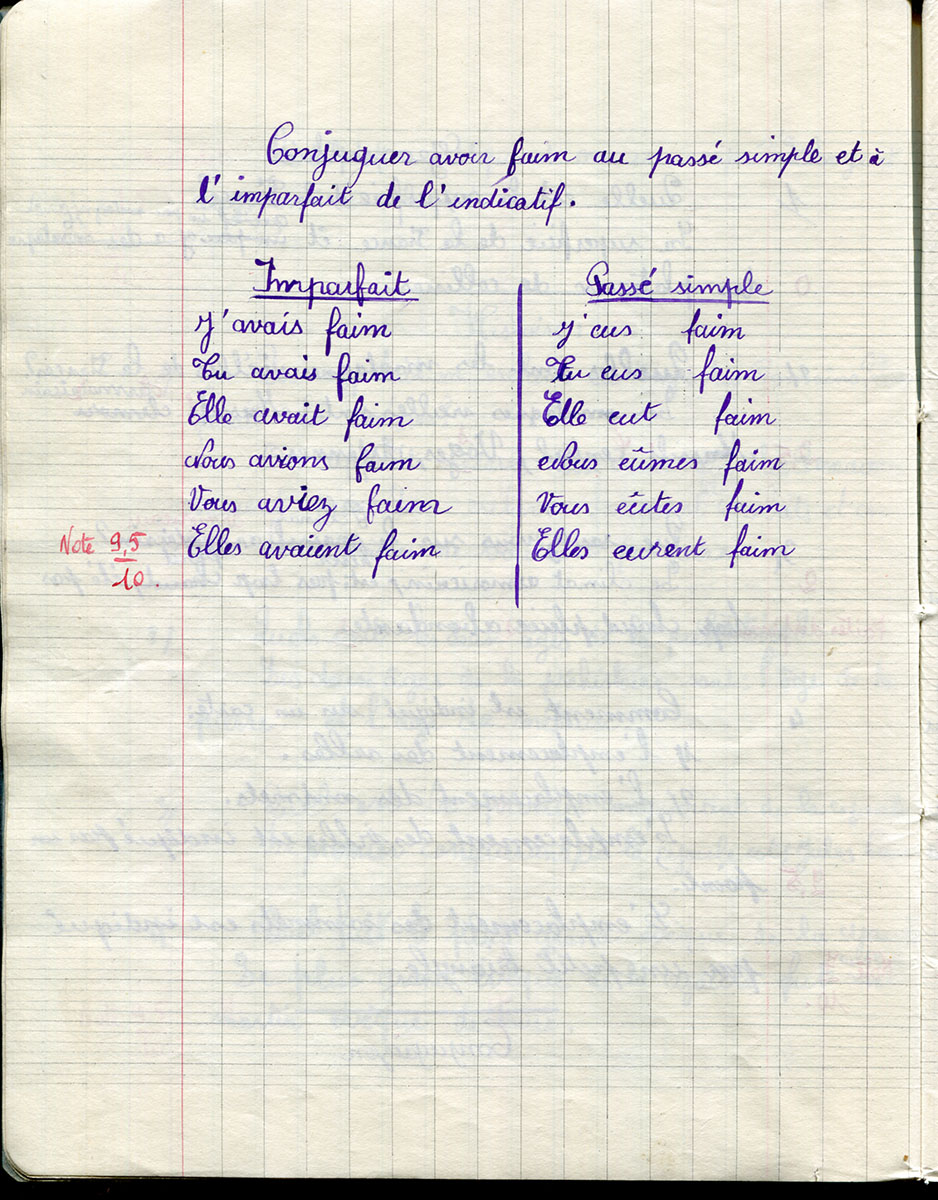 Conjuguer avoir faim au passé simple et à
l'imparfait de l'indicatif.
Imparfait
J'avais faim
Tu avais faim
Elle avait faim
Nous avions faim
Vous aviez faim
Elles avaient faim
Passé simple
J'eus faim
Tu eus faim
Elle eut faim
Nous eûmes faim
Vous eûtes faim
Elles eurent faim
Note 9,5
10.